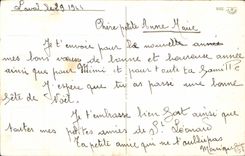 Laval le 29 1911
Chère petite Anne Marie
Je t'envoie pour la nouvelle année
mes bons vœux de bonne et heureuse année
ainsi que pour Mimi et pour toute ta famille
J'espère que tu as passé une bonne
fête de Noël.
Je t'embrasse bien fort ainsi que
toutes mes petites amies de St Léonard
Ta petite amie qui ne t'oublie pas